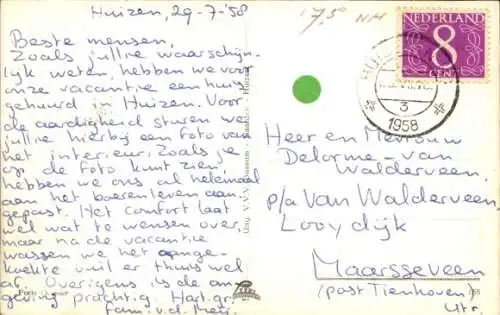 Huizen, 29-7-'58
Beste mensen,
Zoals jullie waarschijn-
lijk weten, hebben we voor
onze vacantie een huis
gehuurd in Huizen. Voor
de aardigheid sturen we
jullie hierbij een foto van
het interieur. Zoals je
op de foto kunt zien
hebben we ons al helemaal
aan het boerenleven aan-
gepast. Het comfort laat
wel wat te wensen over,
maar na de vacantie
wassen we het aange-
koekte vuil er thuis wel
af. Overigens is de om-
geving prachtig. Hart. gr.
Fam. v.d. Meer
17,50 NH
NEDERLAND
8
CENT
3
1958
Heer en Mevrouw
Delorme-van
Walderveen,
p/a Van Walderveen
Looydijk
Maarsseveen
(post Tienhoven)
Utr.
Uitg. V.V.V.